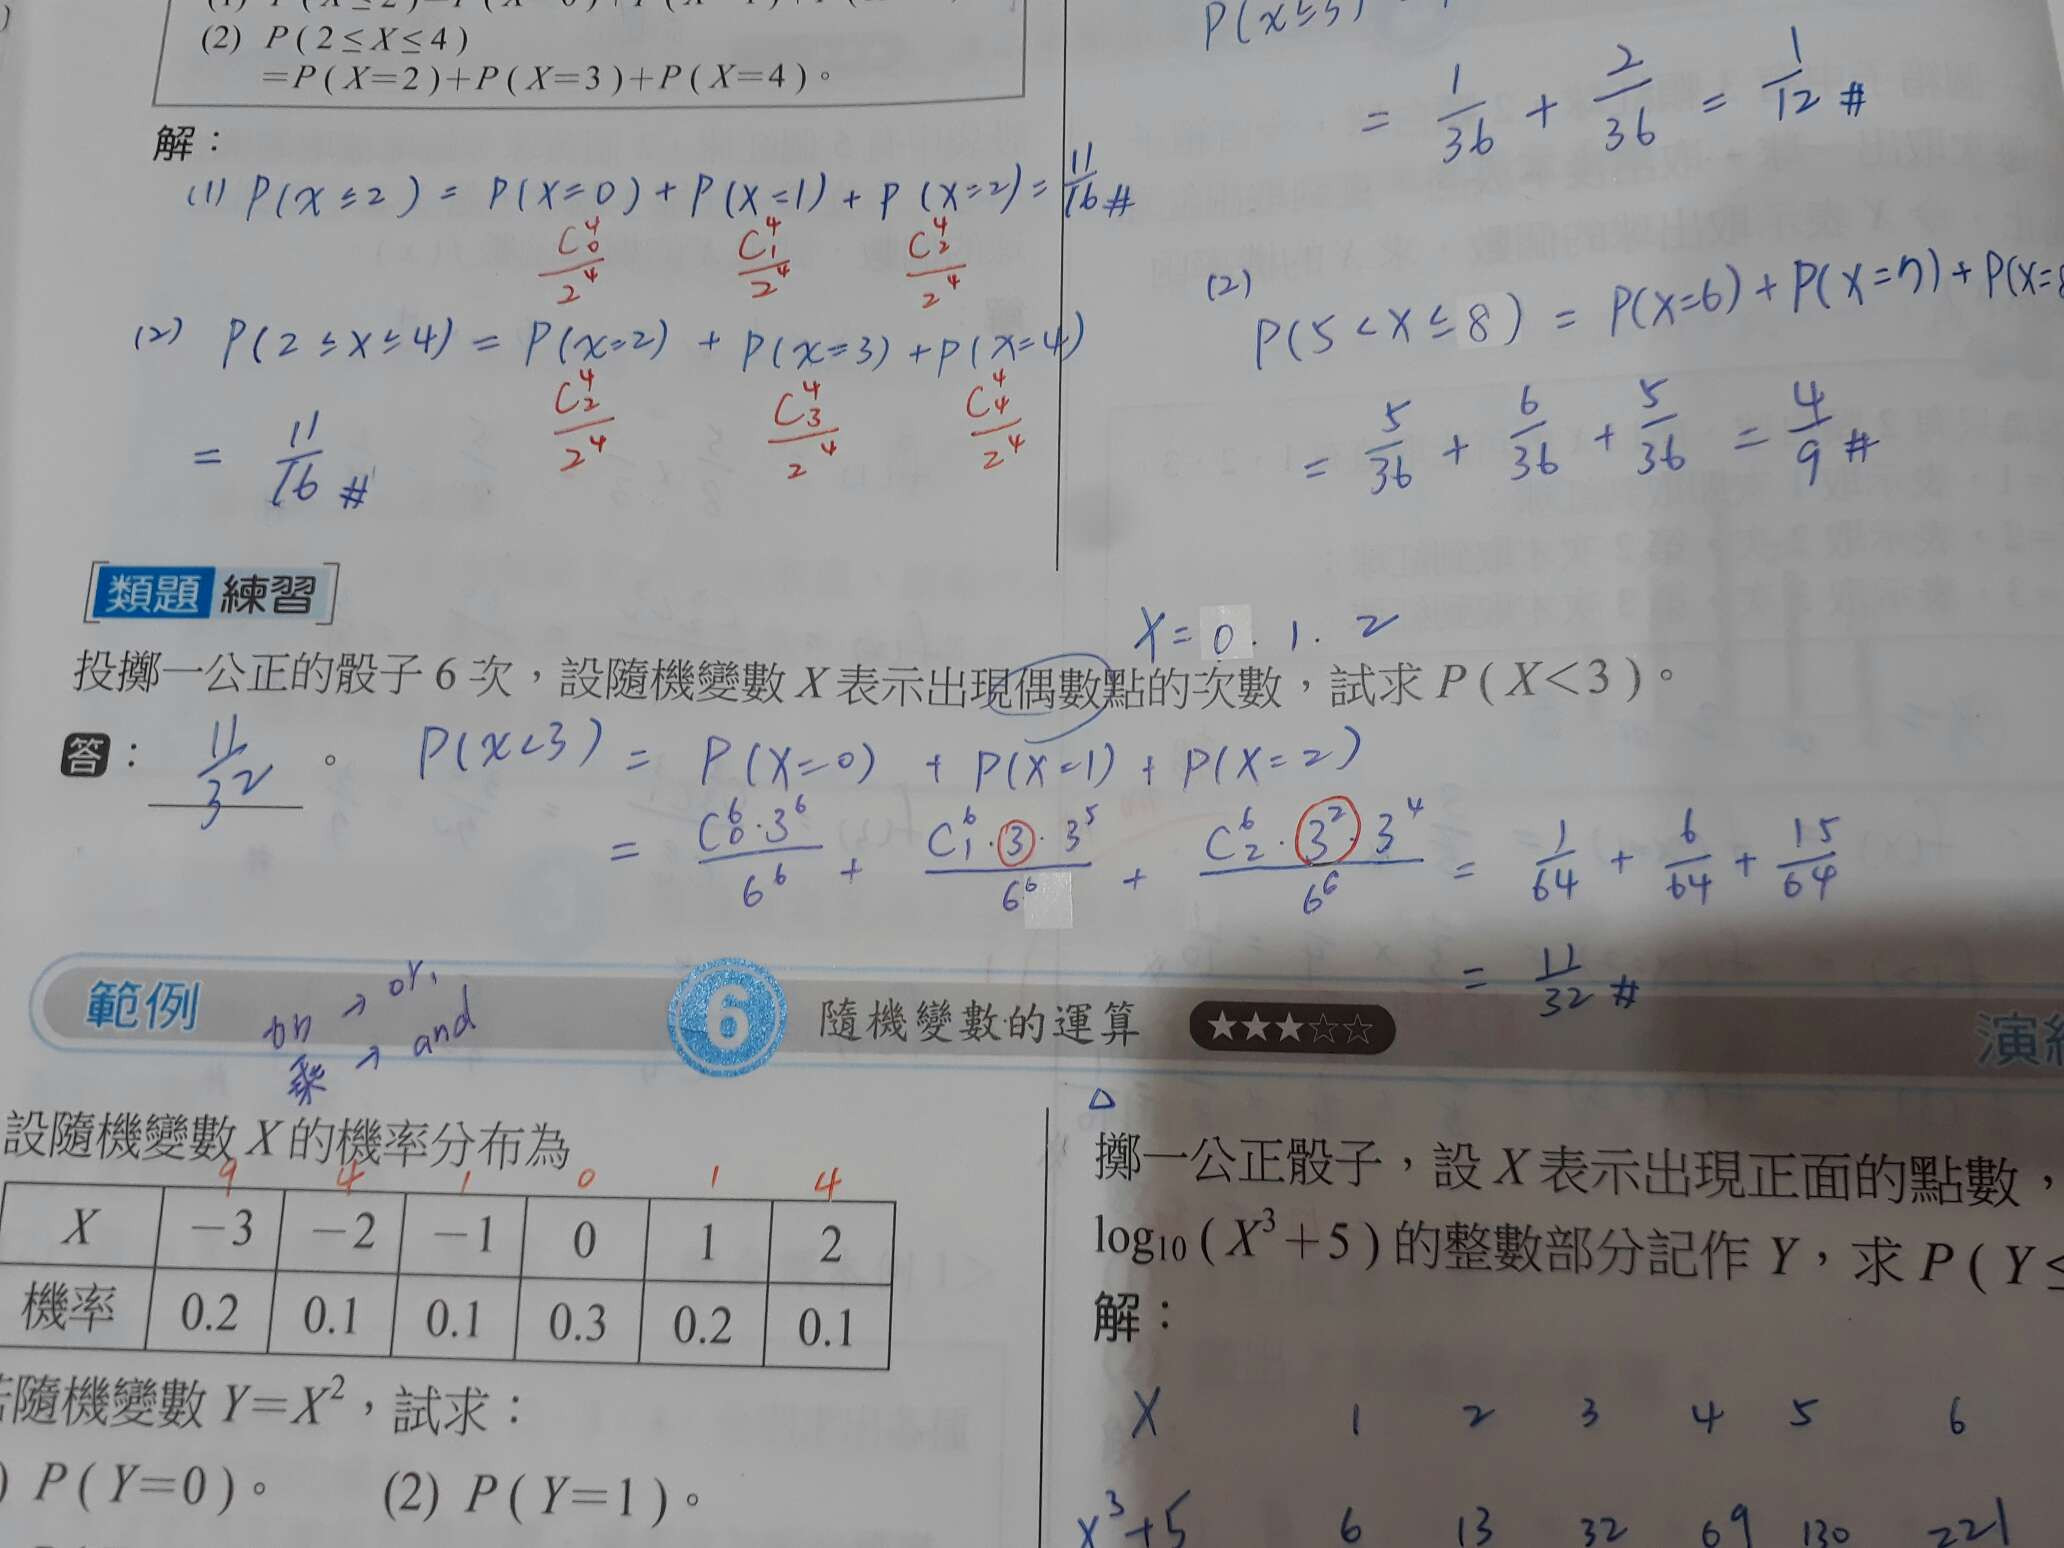 (2) P(2≤X≤4)
=P(X=2)+P(X=3)+P(X=4)。
解：
(1) P(X≤2) = P(X=0) + P(X=1) + P(X=2) = 11/16 #
C⁴₀/2⁴ C⁴₁/2⁴ C⁴₂/2⁴
(2) P(2≤X≤4) = P(X=2) + P(X=3) + P(X=4)
C⁴₂/2⁴ C⁴₃/2⁴ C⁴₄/2⁴
= 11/16 #
= 1/36 + 2/36 = 1/12 #
(2)
P(5<X≤8) = P(X=6) + P(X=7) + P(X=8
= 5/36 + 6/36 + 5/36 = 4/9 #
類題 練習
X = 0 . 1 . 2
投擲一公正的骰子 6 次，設隨機變數 X 表示出現偶數點的次數，試求 P(X<3)。
答： 11/32 。 P(X<3) = P(X=0) + P(X=1) + P(X=2)
= C⁶₀·3⁶/6⁶ + C⁶₁·3·3⁵/6⁶ + C⁶₂·3²·3⁴/6⁶ = 1/64 + 6/64 + 15/64
= 11/32 #
範例 6 隨機變數的運算 ★★★☆☆
→ or,
乘 → and
設隨機變數 X 的機率分布為
9 4 1 0 1 4
X −3 −2 −1 0 1 2
機率 0.2 0.1 0.1 0.3 0.2 0.1
隨機變數 Y=X²，試求：
) P(Y=0)。 (2) P(Y=1)。
△
擲一公正骰子，設 X 表示出現正面的點數，
log₁₀(X³+5)的整數部分記作 Y，求 P(Y≤
解：
X 1 2 3 4 5 6
X³+5 6 13 32 69 130 221